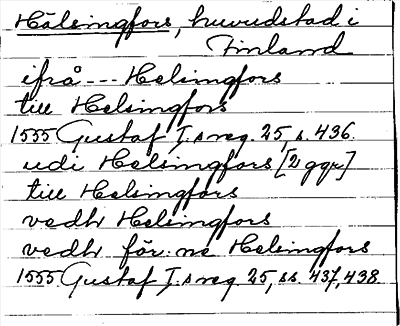 Hälsingfors, huvudstad i
Finland
ifrå --- Helsingfors
till Helsingfors
1555 Gustaf I:s reg. 25, s. 436.
udi Helsingfors [2 ggr]
till Helsingfors
vedh Helsingfors
vedh för:ne Helsingfors
1555 Gustaf I:s reg. 25, ss. 437, 438